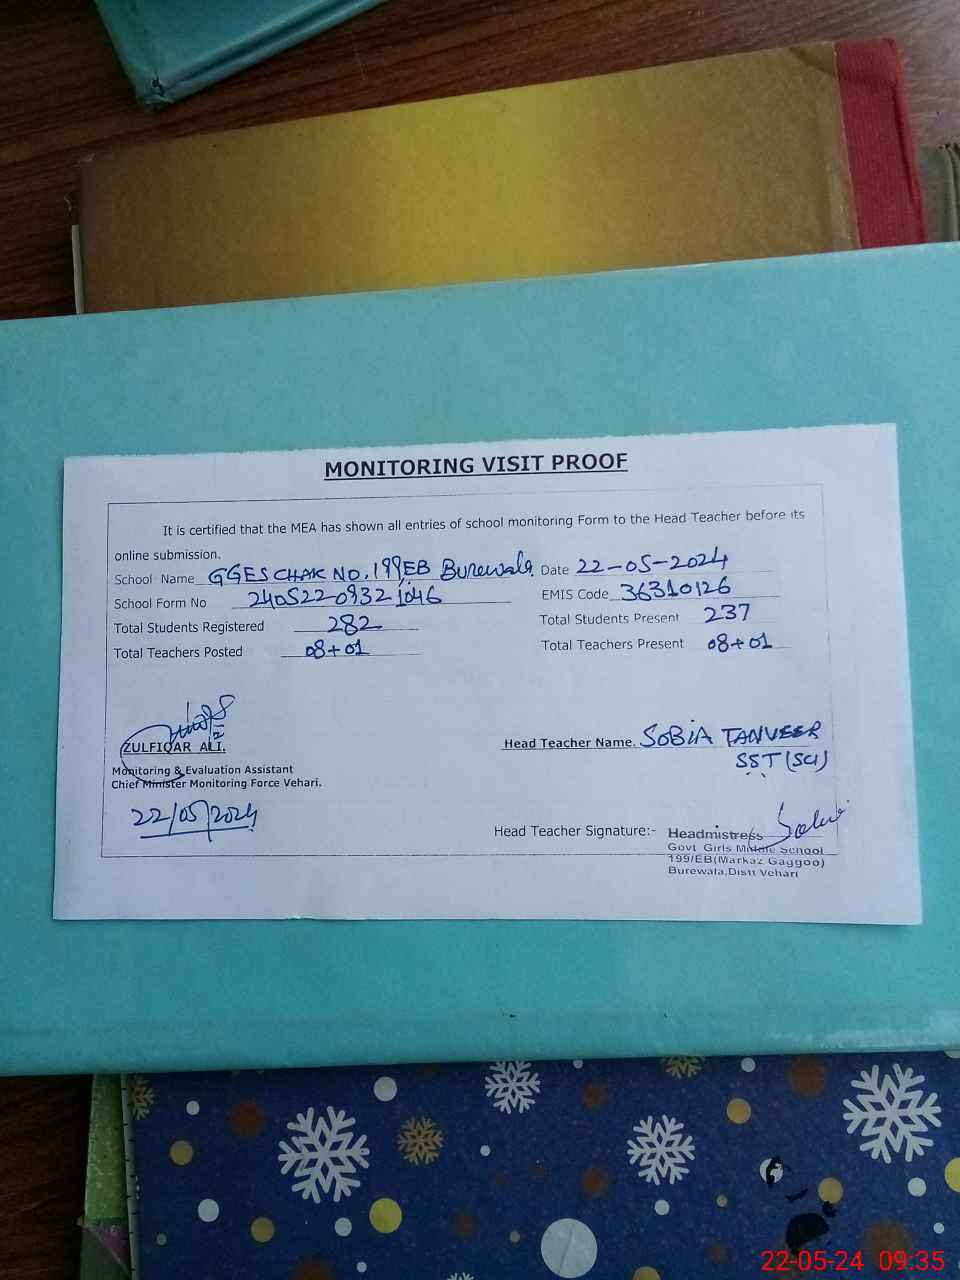 MONITORING VISIT PROOF
It is certified that the MEA has shown all entries of school monitoring Form to the Head Teacher before its
online submission.
School Name GGES CHAK NO. 199/EB Burewala Date 22-05-2024
School Form No 240522-0932-1046 EMIS Code 36310126
Total Students Registered 282 Total Students Present 237
Total Teachers Posted 08+01 Total Teachers Present 08+01
ZULFIQAR ALI.
Monitoring & Evaluation Assistant
Chief Minister Monitoring Force Vehari.
22/05/2024
Head Teacher Name. SOBiA TANVEER
SST (SCI)
Head Teacher Signature:- Headmistress
Govt Girls Middle School
199/EB(Markaz Gaggoo)
Burewala,Distt Vehari
22-05-24 09:35